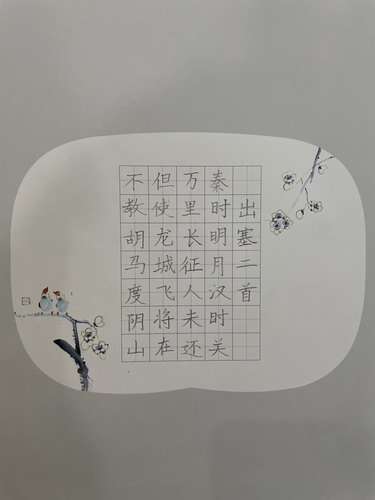 出塞二首
秦时明月汉时关
万里长征人未还
但使龙城飞将在
不教胡马度阴山